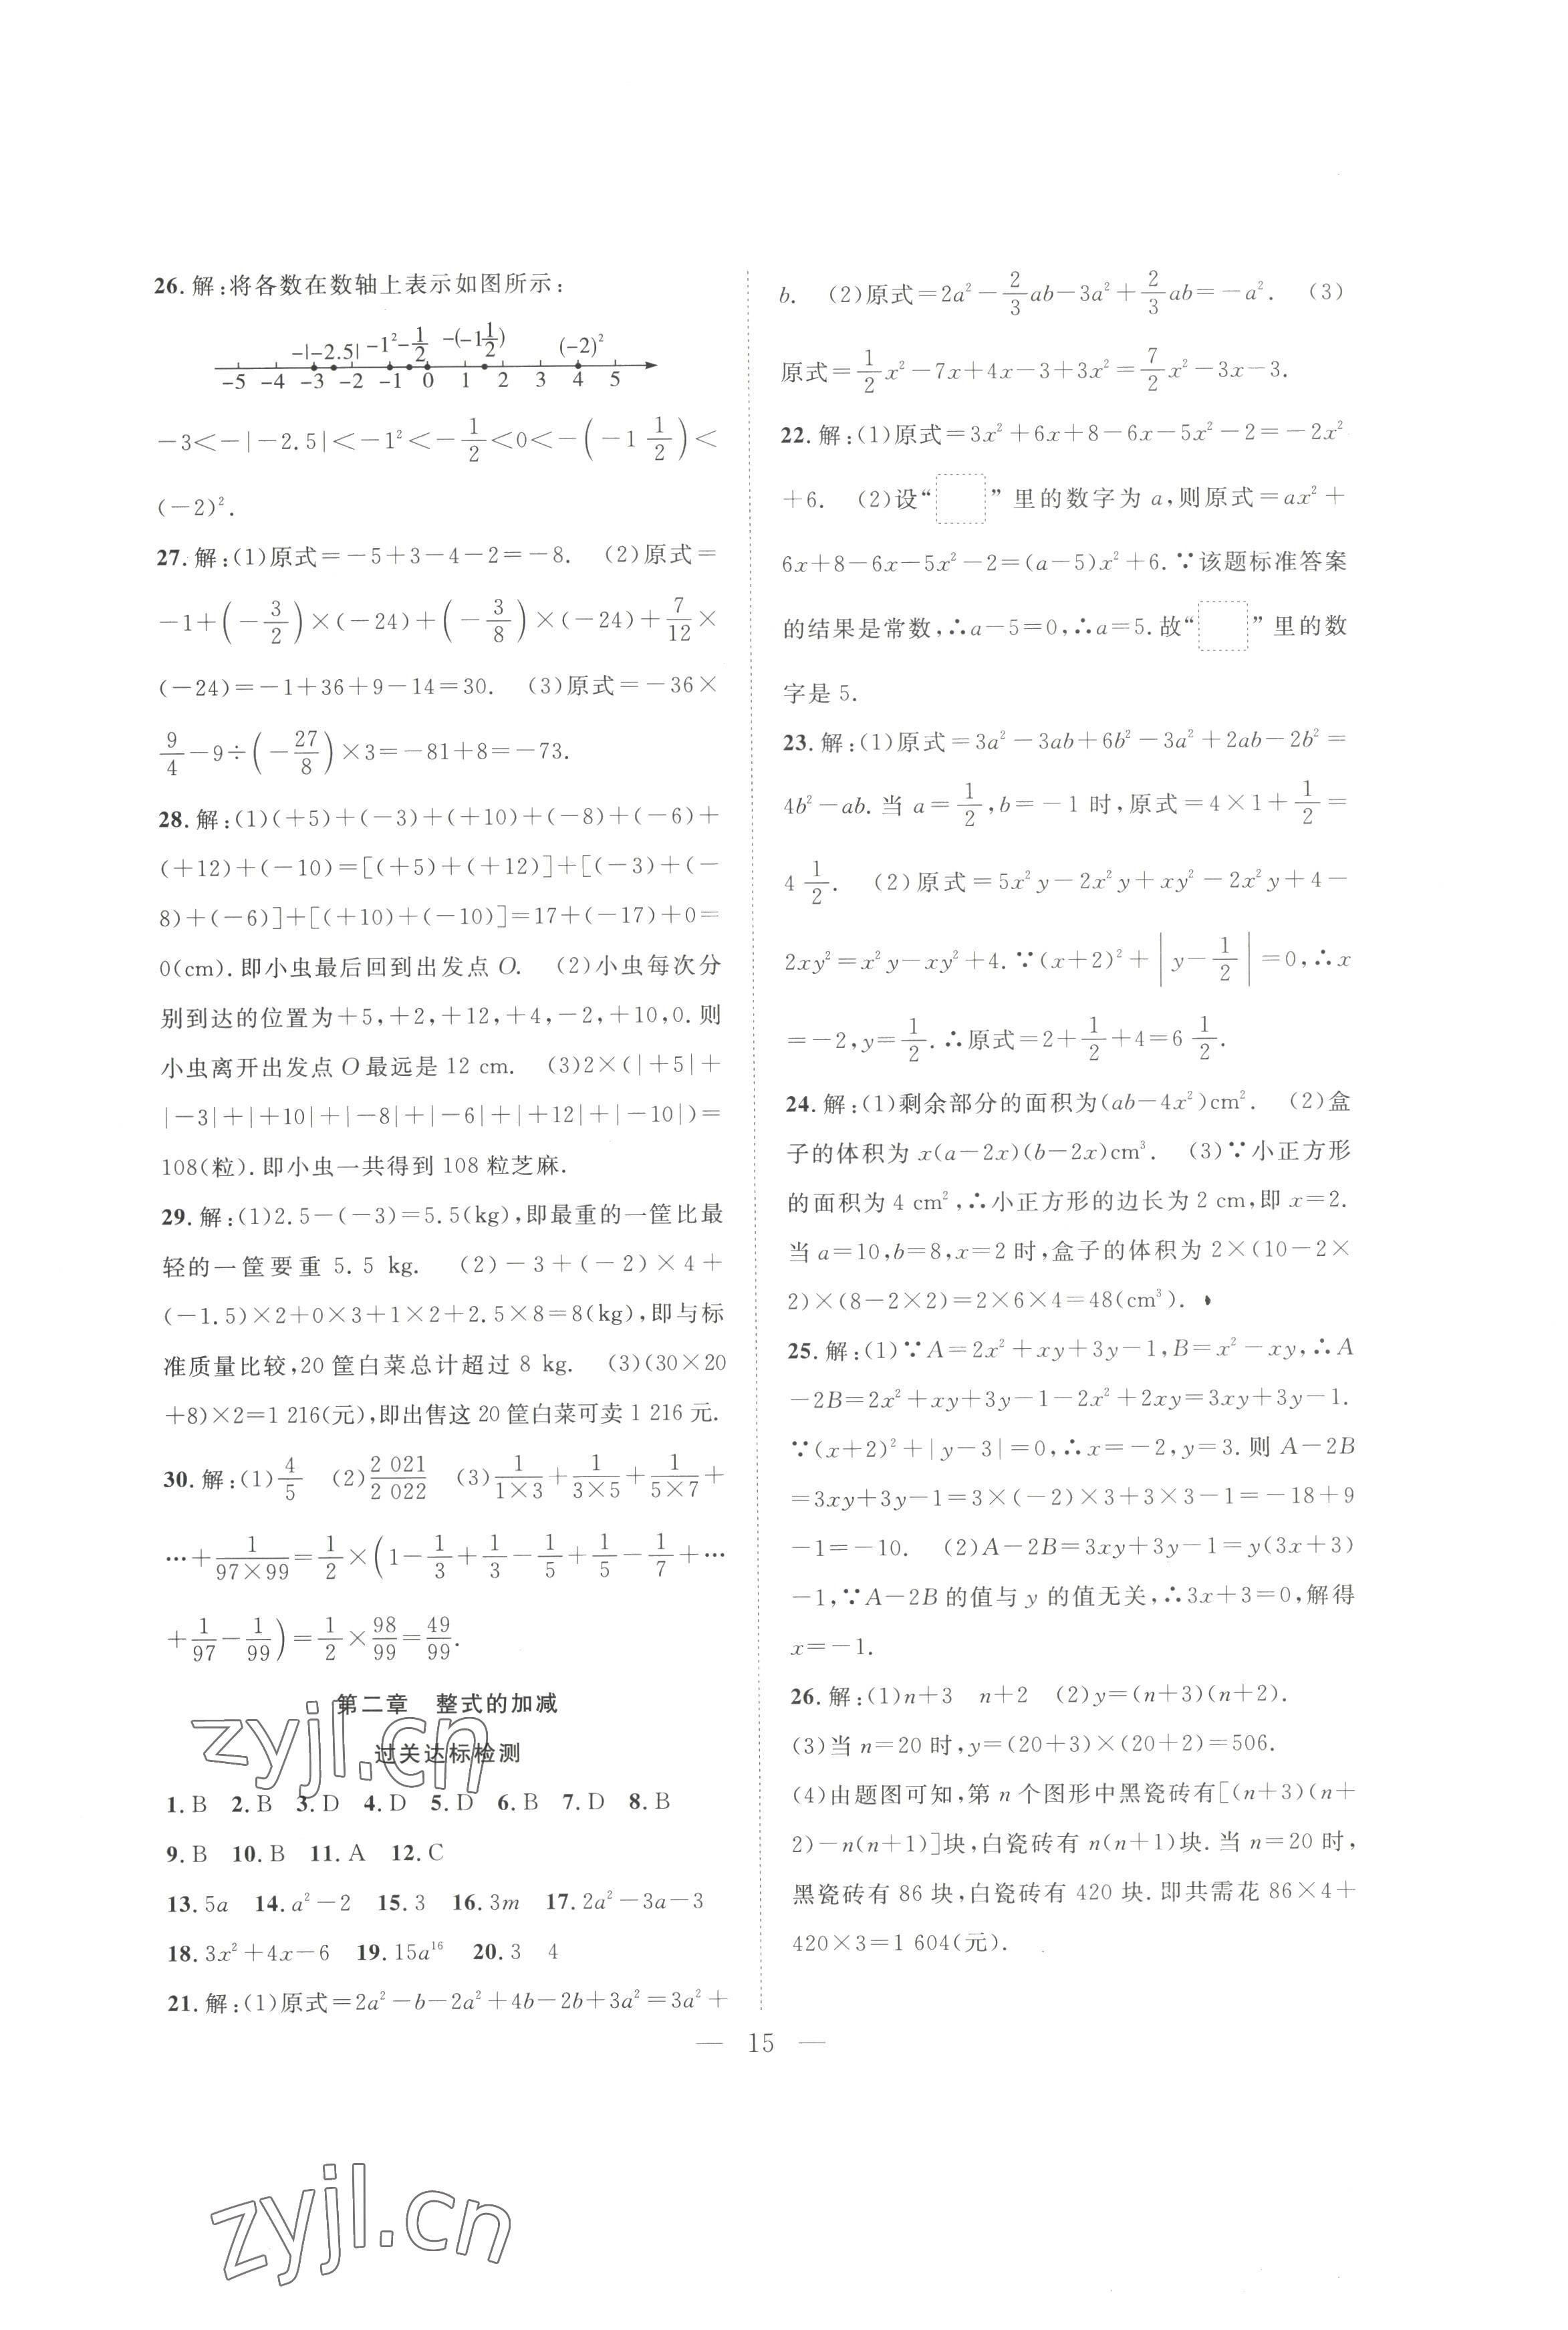 26.解:将各数在数轴上表示如图所示:
-|-2.5| -1² -1/2 -(-1 1/2) (-2)²
-5 -4 -3 -2 -1 0 1 2 3 4 5
-3<-|-2.5|<-1²<-1/2<0<-(-1 1/2)<
(-2)².
27.解:(1)原式=-5+3-4-2=-8. (2)原式=
-1+(-3/2)×(-24)+(-3/8)×(-24)+7/12×
(-24)=-1+36+9-14=30. (3)原式=-36×
9/4-9÷(-27/8)×3=-81+8=-73.
28.解:(1)(+5)+(-3)+(+10)+(-8)+(-6)+
(+12)+(-10)=[(+5)+(+12)]+[(-3)+(-
8)+(-6)]+[(+10)+(-10)]=17+(-17)+0=
0(cm).即小虫最后回到出发点 O. (2)小虫每次分
别到达的位置为+5,+2,+12,+4,-2,+10,0.则
小虫离开出发点 O 最远是 12 cm. (3)2×(|+5|+
|-3|+|+10|+|-8|+|-6|+|+12|+|-10|)=
108(粒).即小虫一共得到 108 粒芝麻.
29.解:(1)2.5-(-3)=5.5(kg),即最重的一筐比最
轻的一筐要重 5.5 kg. (2)-3+(-2)×4+
(-1.5)×2+0×3+1×2+2.5×8=8(kg),即与标
准质量比较,20 筐白菜总计超过 8 kg. (3)(30×20
+8)×2=1 216(元),即出售这 20 筐白菜可卖 1 216 元.
30.解:(1)4/5 (2)2 021/2 022 (3)1/(1×3)+1/(3×5)+1/(5×7)+
…+1/(97×99)=1/2×(1-1/3+1/3-1/5+1/5-1/7+…
+1/97-1/99)=1/2×98/99=49/99.
第二章 整式的加减
过关达标检测
1.B 2.B 3.D 4.D 5.D 6.B 7.D 8.B
9.B 10.B 11.A 12.C
13.5a 14.a²-2 15.3 16.3m 17.2a²-3a-3
18.3x²+4x-6 19.15a¹⁶ 20.3 4
21.解:(1)原式=2a²-b-2a²+4b-2b+3a²=3a²+
b. (2)原式=2a²-2/3ab-3a²+2/3ab=-a². (3)
原式=1/2x²-7x+4x-3+3x²=7/2x²-3x-3.
22.解:(1)原式=3x²+6x+8-6x-5x²-2=-2x²
+6. (2)设“ ”里的数字为 a,则原式=ax²+
6x+8-6x-5x²-2=(a-5)x²+6.∵该题标准答案
的结果是常数,∴a-5=0,∴a=5.故“ ”里的数
字是 5.
23.解:(1)原式=3a²-3ab+6b²-3a²+2ab-2b²=
4b²-ab.当 a=1/2,b=-1 时,原式=4×1+1/2=
4 1/2. (2)原式=5x²y-2x²y+xy²-2x²y+4-
2xy²=x²y-xy²+4.∵(x+2)²+|y-1/2|=0,∴x
=-2,y=1/2.∴原式=2+1/2+4=6 1/2.
24.解:(1)剩余部分的面积为(ab-4x²)cm². (2)盒
子的体积为 x(a-2x)(b-2x)cm³. (3)∵小正方形
的面积为 4 cm²,∴小正方形的边长为 2 cm,即 x=2.
当 a=10,b=8,x=2 时,盒子的体积为 2×(10-2×
2)×(8-2×2)=2×6×4=48(cm³).
25.解:(1)∵A=2x²+xy+3y-1,B=x²-xy,∴A
-2B=2x²+xy+3y-1-2x²+2xy=3xy+3y-1.
∵(x+2)²+|y-3|=0,∴x=-2,y=3.则 A-2B
=3xy+3y-1=3×(-2)×3+3×3-1=-18+9
-1=-10. (2)A-2B=3xy+3y-1=y(3x+3)
-1,∵A-2B 的值与 y 的值无关,∴3x+3=0,解得
x=-1.
26.解:(1)n+3 n+2 (2)y=(n+3)(n+2).
(3)当 n=20 时,y=(20+3)×(20+2)=506.
(4)由题图可知,第 n 个图形中黑瓷砖有[(n+3)(n+
2)-n(n+1)]块,白瓷砖有 n(n+1)块.当 n=20 时,
黑瓷砖有 86 块,白瓷砖有 420 块.即共需花 86×4+
420×3=1 604(元).
— 15 —
zyjl.cn
zyjl.cn